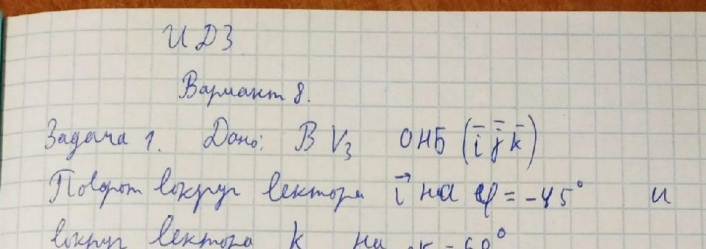 ИДЗ
Вариант 8.
Задача 1. Дано: В V₃ ОНБ (i̅ j̅ k̅)
Поворот вокруг вектора i⃗ на φ = -45° и
вокруг вектора k на = 60°